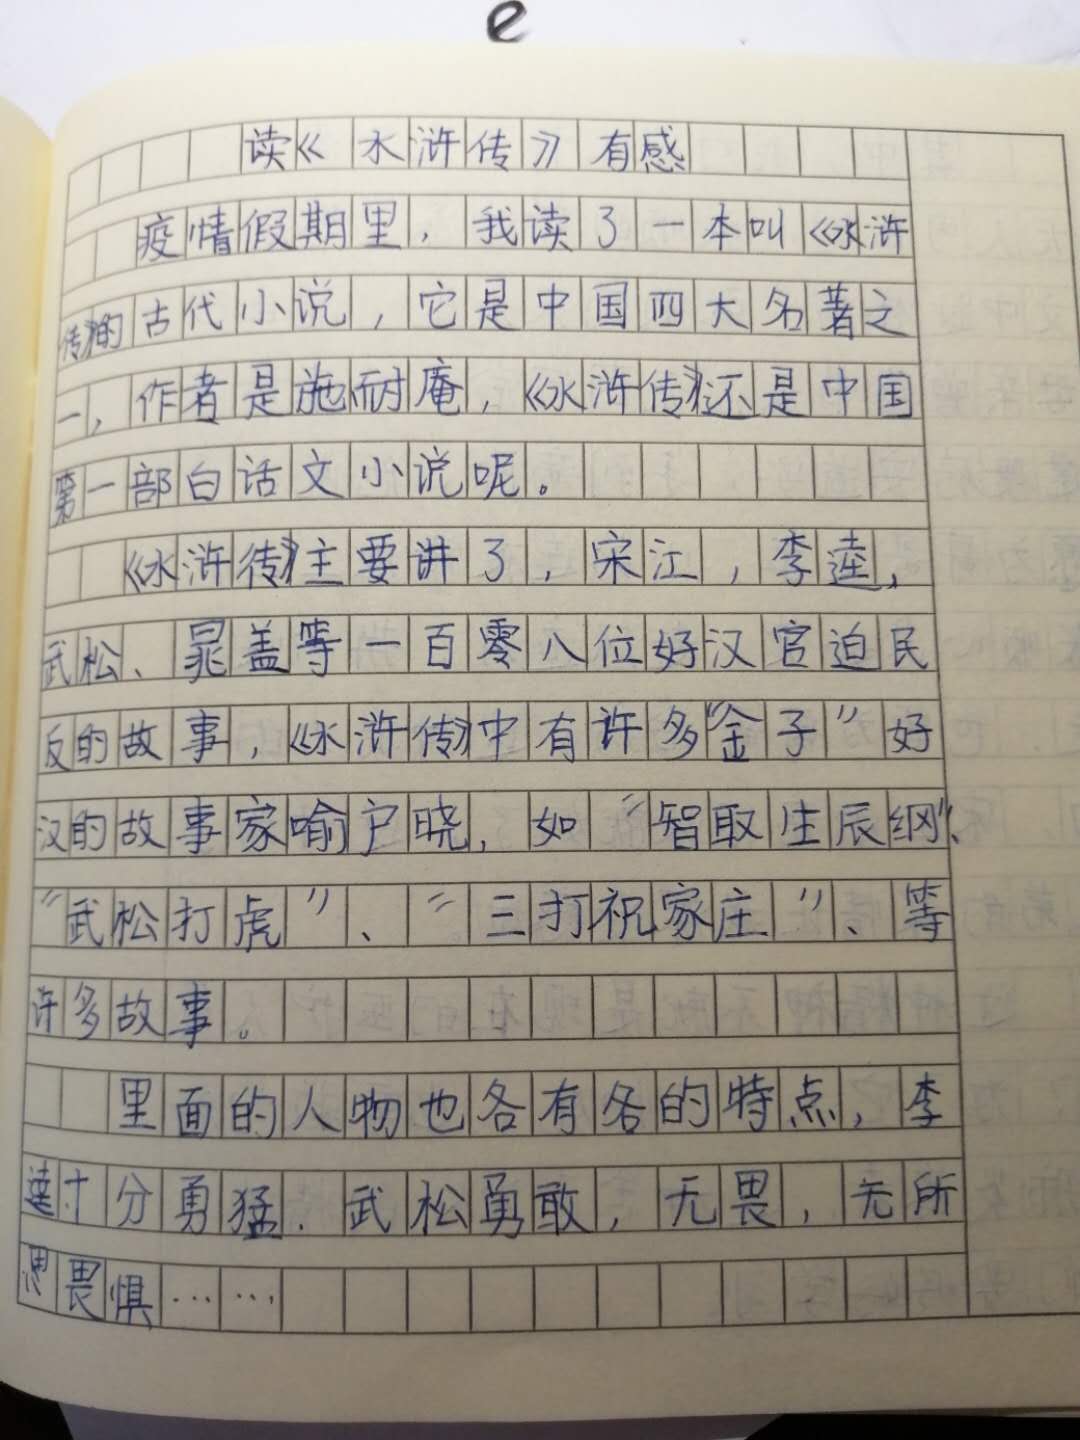 e
读《水浒传》有感
疫情假期里，我读了一本叫《水浒
传》的古代小说，它是中国四大名著之
一，作者是施耐庵，《水浒传》还是中国
第一部白话文小说呢。
《水浒传》主要讲了，宋江，李逵，
武松、晁盖等一百零八位好汉官迫民
反的故事，《水浒传》中有许多“金子”好
汉的故事家喻户晓，如“智取生辰纲”、
“武松打虎”、“三打祝家庄”、等
许多故事。
里面的人物也各有各的特点，李
逵十分勇猛．武松勇敢，无畏，无所
思畏惧……